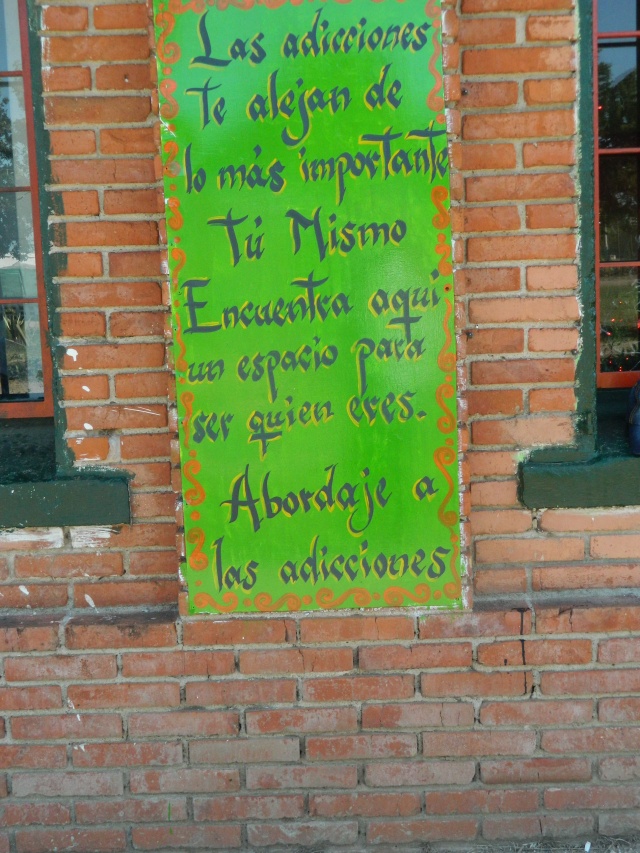 Las adicciones
te alejan de
lo más importante
Tú Mismo
Encuentra aquí
un espacio para
ser quien eres.
Abordaje a
las adicciones